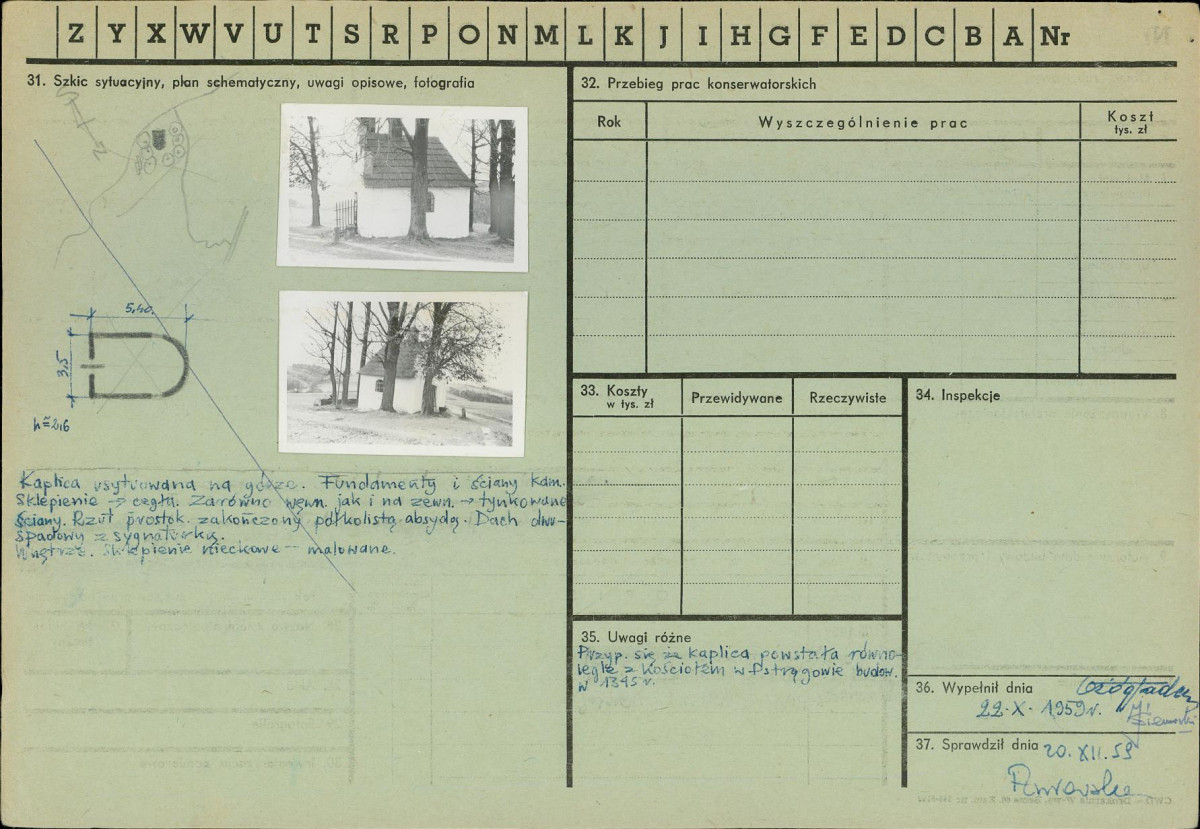 Z Y X W V U T S R P O N M L K J I H G F E D C B A Nr
31. Szkic sytuacyjny, plan schematyczny, uwagi opisowe, fotografia
5,40.
3,5
h=2,6
Kaplica usytuowana na górze. Fundamenty i ściany kam.
Sklepienie → cegła. Zarówno wewn. jak i na zewn. → tynkowane
ściany. Rzut prostok. zakończony półkolistą absydą. Dach dwu-
spadowy z sygnaturką.
Wnętrze. Sklepienie nieckowe – malowane.
32. Przebieg prac konserwatorskich
Rok
Wyszczególnienie prac
Koszt
tys. zł
33. Koszty
w tys. zł
Przewidywane
Rzeczywiste
34. Inspekcje
35. Uwagi różne
Przyp. się że kaplica powstała równo-
legle z kościołem w Pstrągowie budow.
w 1345 r.
36. Wypełnił dnia
22.X.1959r.
37. Sprawdził dnia 20.XII.59